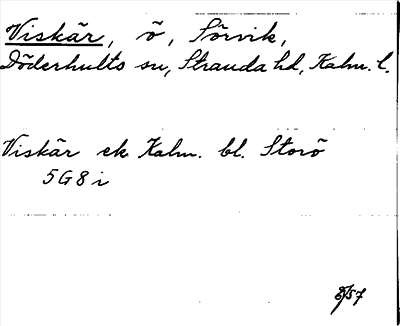 Viskär, ö, Sörvik,
Döderhults sn, Stranda hd, Kalm. l.
Viskär ek Kalm. bl. Storö
5G8i
/57